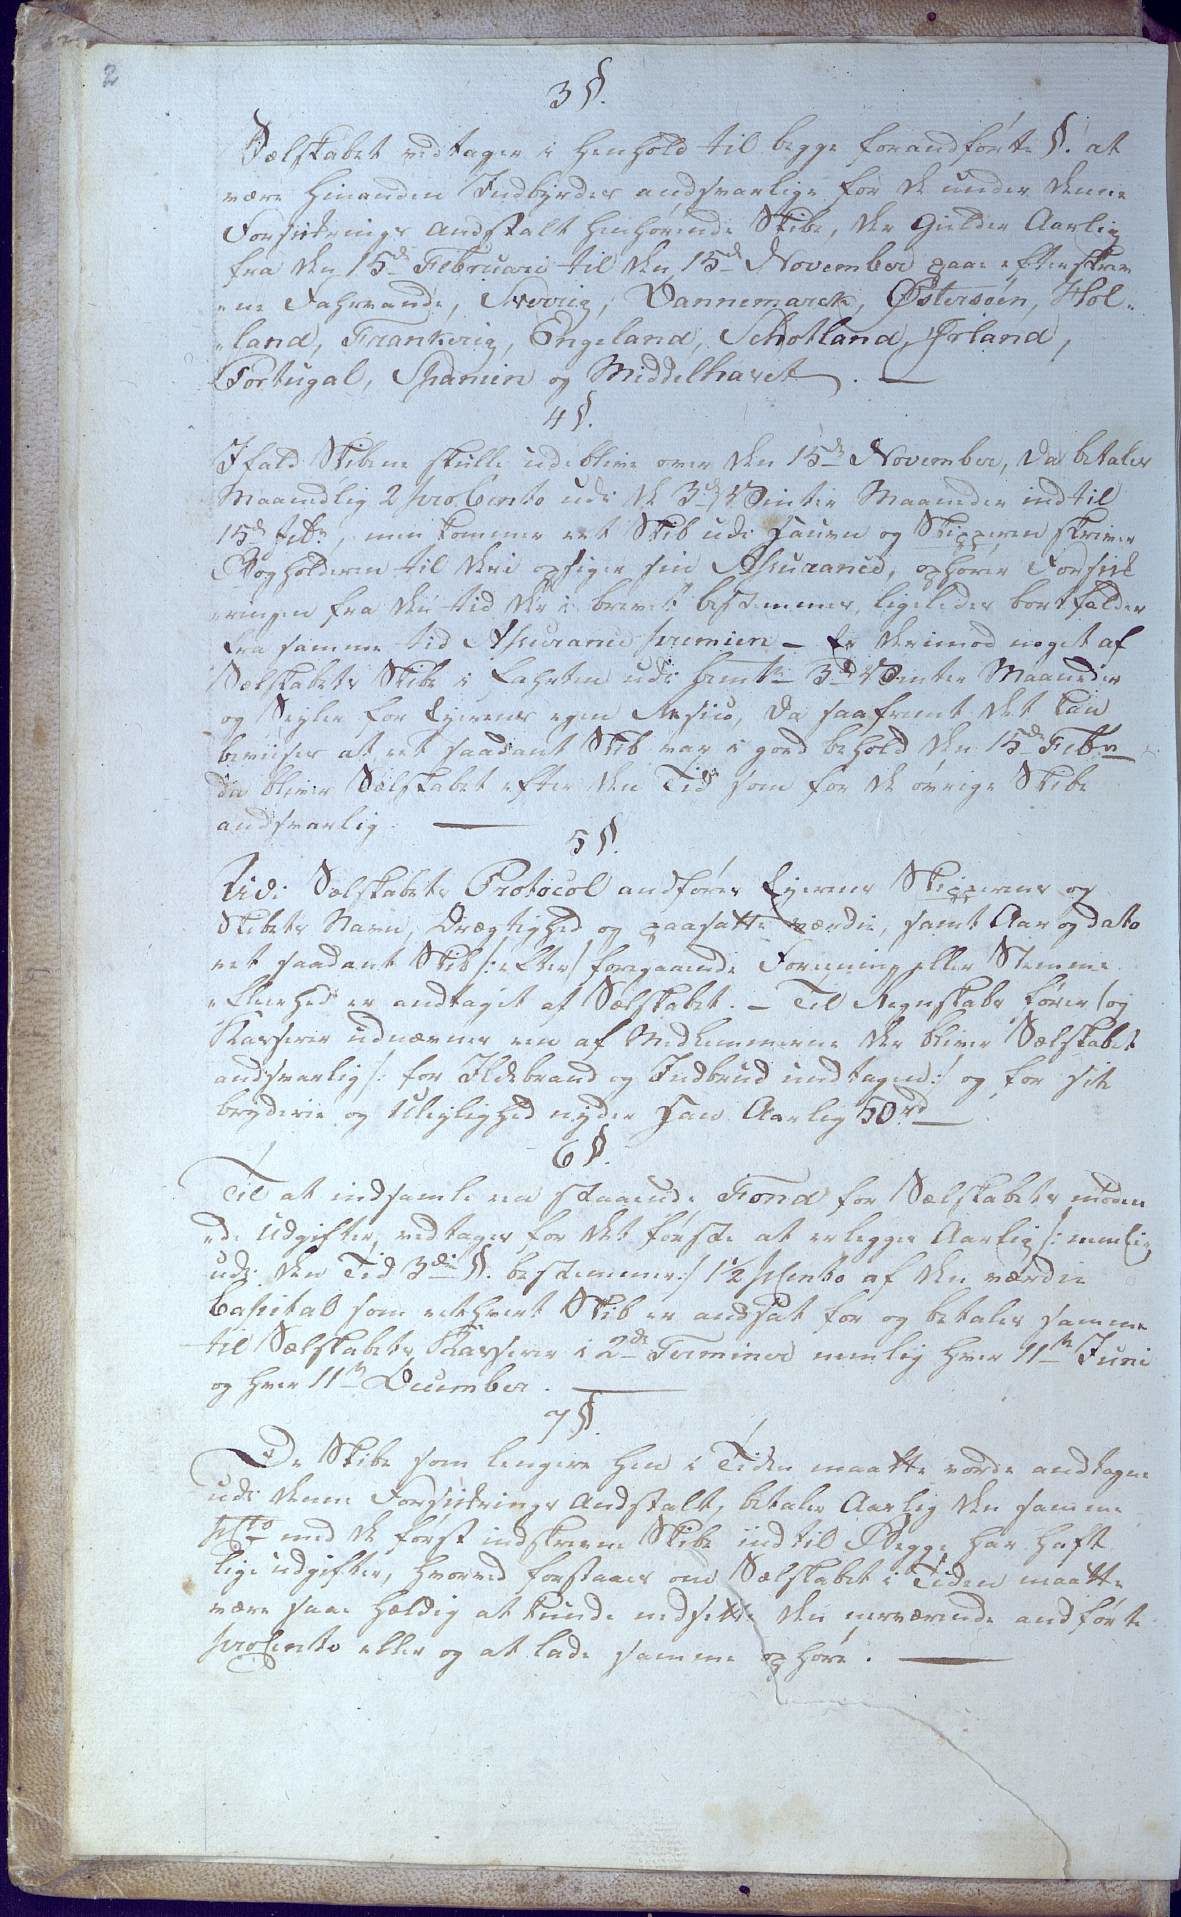 2
3 §.
Sælskabet vedtager i henhold til begge forandførte §. at
være hinanden Indbyrdes andsvarlige for de under denne
Forsikrings Andstalt henhørende Skibe, der gielder Aarlig
fra den 15de Februari til den 15de November paa efterskrev
"ne Fahrvande, Sverrig, Dannemarck, Østersøen, Hol-
"land, Frankerig, Engeland, Schotland, Irland,
Portugal, Spanien og Middelhavet. —
4 §.
Ifald Skibene skulle udeblive over den 15de November, da betales
Maanedlig 2 pro Cento udi de 3de Vinter Maaneder indtil
15de Febr, men kommer eet Skib udi Hauen og Skipperen skriver
Bogholderen til deri opsiger sin Assurance, ophører Forsik
"ringen fra den tid der i brevet bestemmes, ligeledes bortfalder
fra samme tid Assurance premien – Er derimod noget af
Sælskabets Skibe i Farten udi bemte 3de Vinter Maaneder
og Seyler for Eyernes egen Resico, da saafremt det kan
bevises at eet saadant Skib var i goed behold den 15de Febr
da bliver Sælskabet efter den Tid som for de øvrige Skibe
andsvarlig. —
5 §.
Udi Sælskabets Protocol andføres Eyerens Skipperens og
Skibets Navn, Drægtighed og paasatte værdie, samt Aar og dato
eet saadant Skib /: efter / foregaaende Foreening eller Stemme
"fleerhed er andtaget af Sælskabet. – Til Regnskabs fører /og
Kasserer udnævnes een af Medlemmerne der bliver Sælskabet
andsvarlig /: for Ildebrand og Indbrud undtagen :/ og for sit
bryderie og Uleylighed nyder Han Aarlig 50 rd —
6 §.
Til at indsamle een staaende Fond for Sælskabets møden
"de Udgifter, vedtages for det første at erlegges Aarlig /: nemlig
udi den Tid 3die §. bestemmer :/ 1½ pCento af den værdie
Capital som eethvert Skib er andsat for og betales samme
til Sælskabets Kasserer i 2de Terminer nemlig hver 11te Juni
og hver 11te December. —
7 §.
De Skibe som lengere hen i Tiden maatte vorde andtagne
udi denne Forsikrings Andstalt, betaler Aarlig den samme
pCto med de først indskrevne Skibe indtil Begge har haft
lige udgifter, hvorved forstaaes om Sælskabet i Tiden maatte
være saa heldig at kunde nedsette den nerværende andførte
pro Cento eller og at lade samme ophøre. —